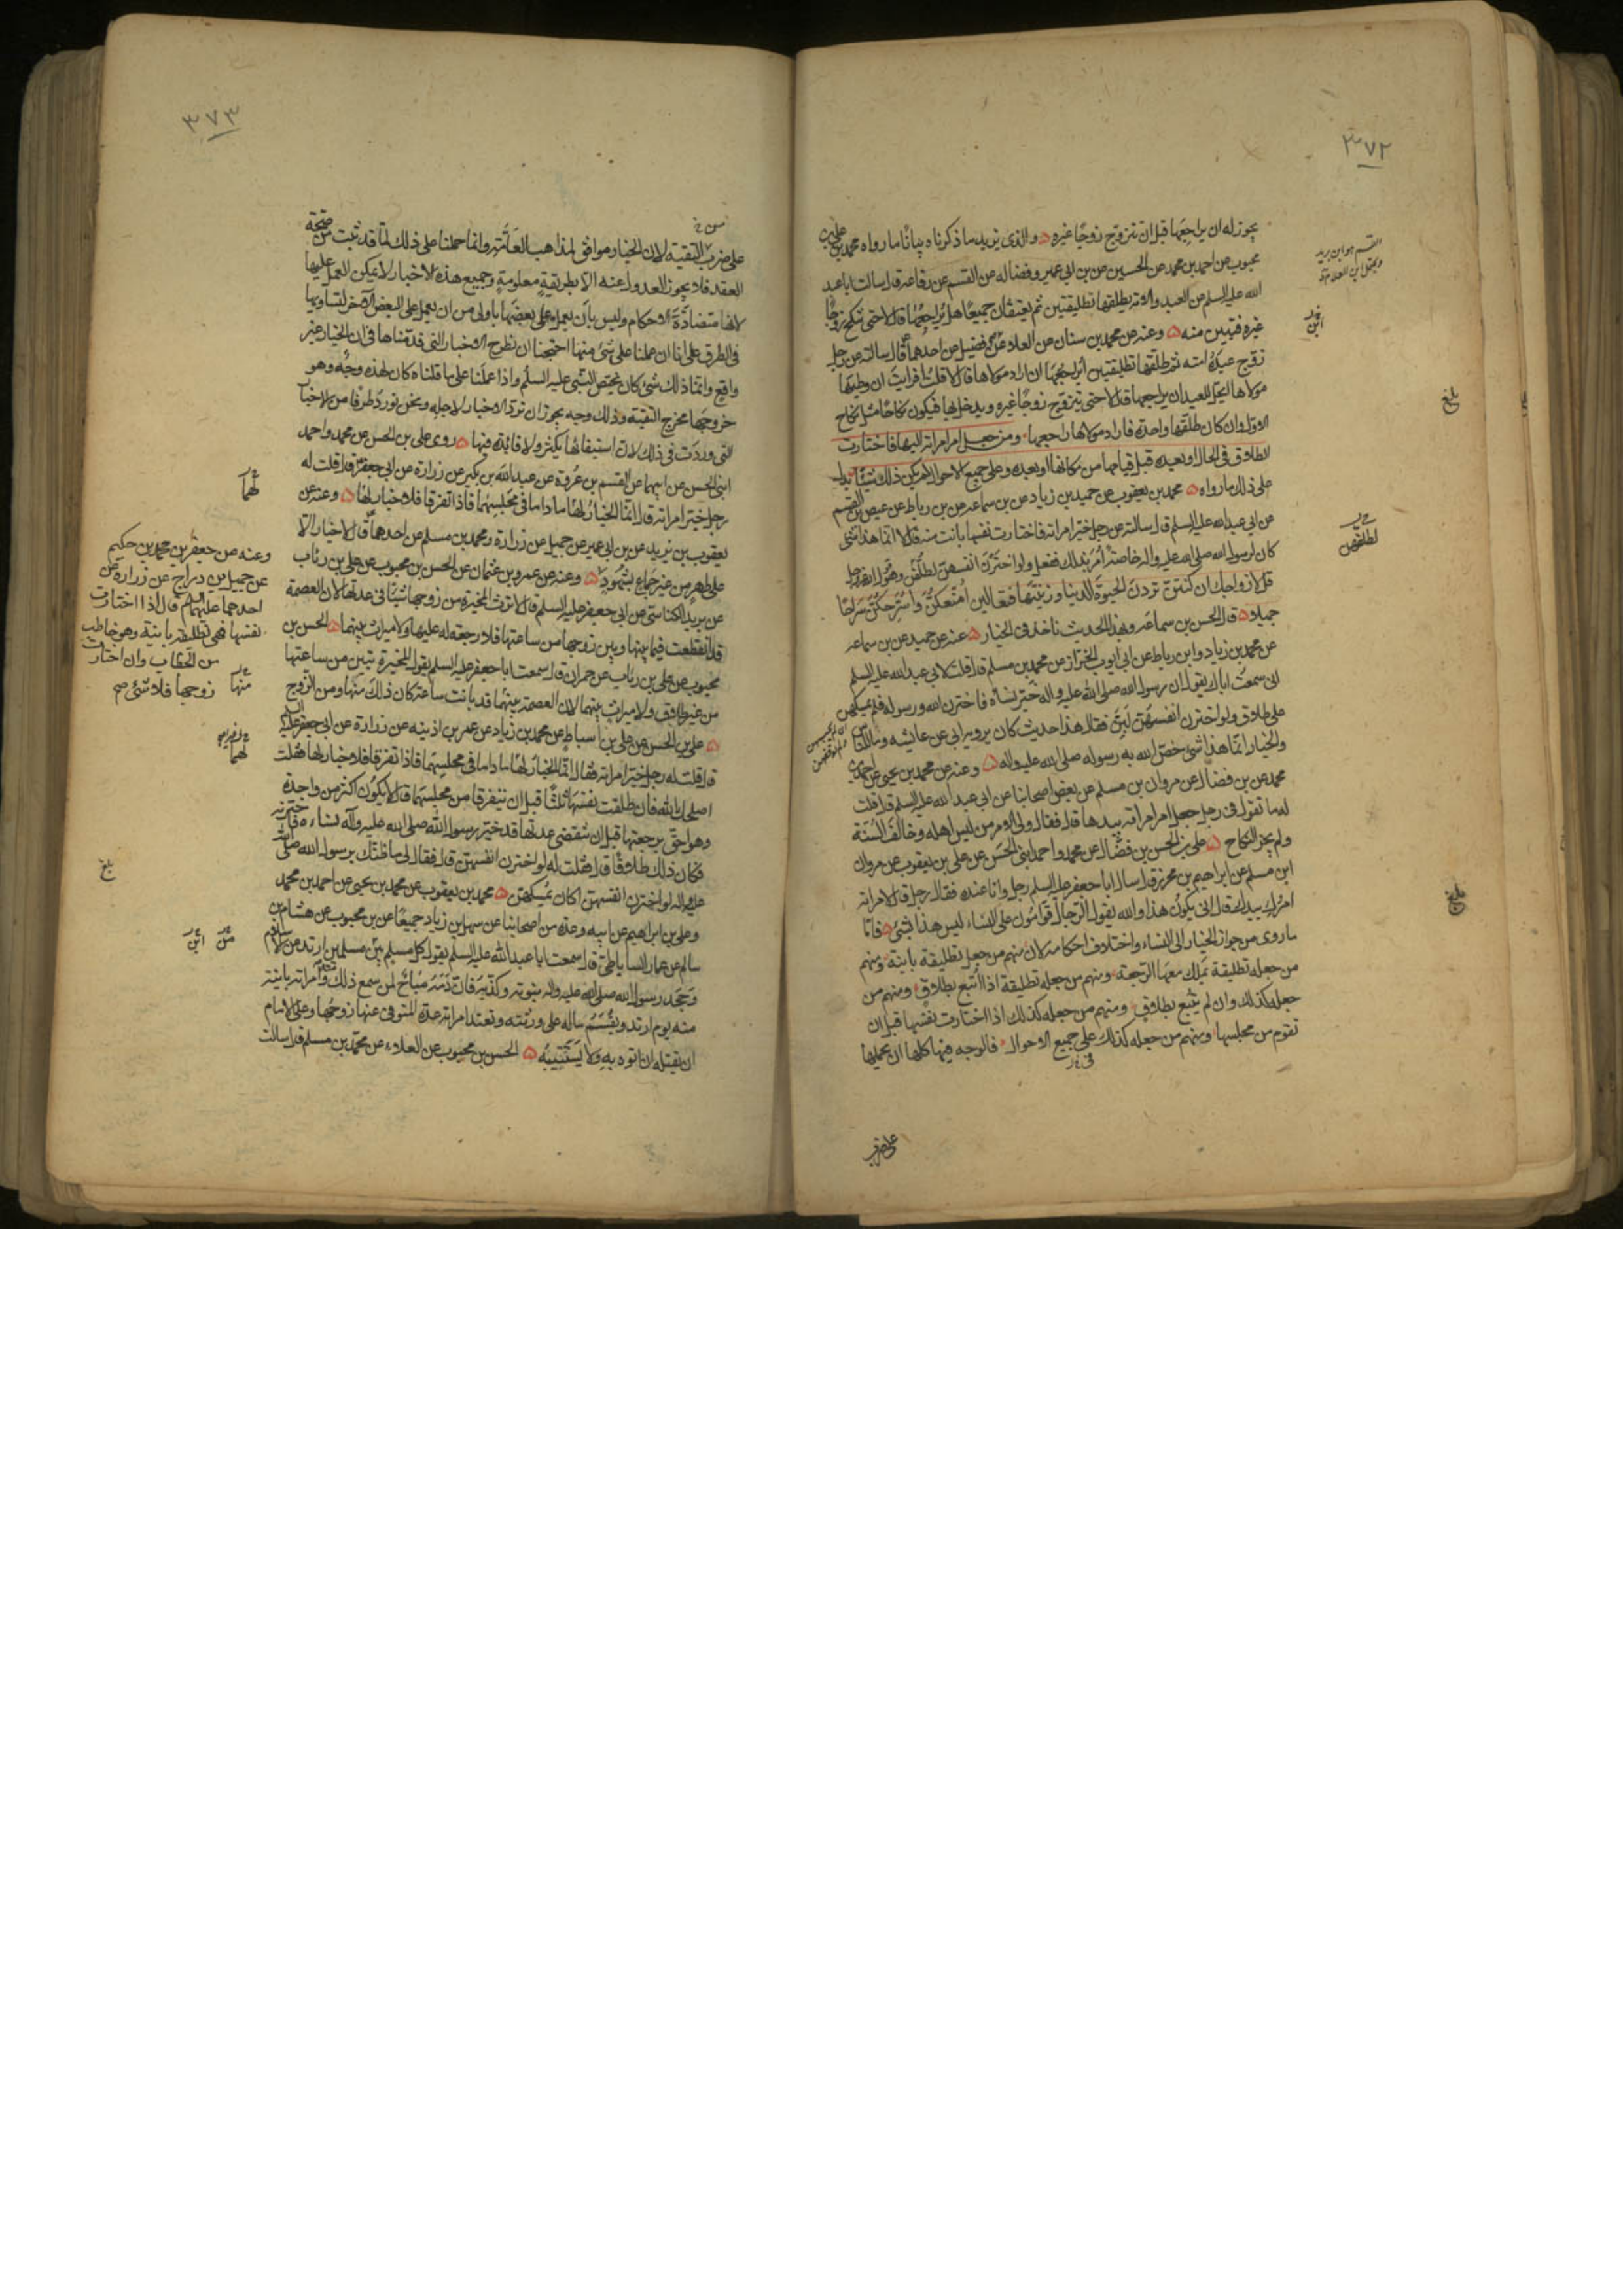 ٣٧٢
يجوز له ان يراجعها قبل ان تتزوج زوجًا غيره والذى يزيد ما ذكرناه بيانًا ما رواه محمد بن على بن
محبوب عن احمد بن محمد عن الحسين عن بن ابى عمير وفضاله عن القسم عن رفاعه قال سالت ابا عبد
الله عليه السلم عن العبد والامة يطلقها تطليقتين ثم يعتقان جميعًا هل يراجعها قال لا حتى تنكح زوجًا
غيره فتبين منه وعنه عن محمد بن سنان عن العلا عن فضيل عن احدهما قال سالته عن رجل
زوج عبده امته ثم طلقها تطليقتين أيراجعها ان اراد مولاها قال لا قلت افرايت ان وطيها
مولاها ايحل للعبد ان يراجعها قال لا حتى تتزوج زوجًا غيره ويدخل بها فيكون نكاحًا مثل نكاح
الاول وان كان طلقها واحدة فاراد مولاها راجعها ومن جعل امر امراته اليها فاختارت
الطلاق فى الحال او بعده قبل قيامها من مكانها او بعده وعلى جميع الاحوال لم يكن ذلك شيئًا يدل
على ذلك ما رواه محمد بن يعقوب عن حميد بن زياد عن بن سماعه عن بن رباط عن عيص بن القسم
عن ابى عبد الله عليه السلم قال سالته عن رجل خير امراته فاختارت نفسها بانت منه قال لا انما هذا شى
كان لرسول الله صلى الله عليه واله خاصة أمر بذلك ففعل ولو اخترن انفسهن لطلقن وهو قول الله عز وجل
قل لازواجك ان كنتن تردن الحيوة الدنيا وزينتها فتعالين امتعكن واسرحكن سراحًا
جميلا قال الحسن بن سماعه وبهذا الحديث ناخذ فى الخيار عنه عن حميد عن بن سماعه
عن محمد بن زياد وابن رباط عن ابى ايوب الخزاز عن محمد بن مسلم قال قلت لابى عبد الله عليه السلم
انى سمعت اباك يقول ان رسول الله صلى الله عليه واله خير نساه فاخترن الله ورسوله فلم يمسكهن
على طلاق ولو اخترن انفسهن لبن فقال هذا حديث كان يرويه ابى عن عايشه وما للناس
والخيار انما هذا شى خص الله به رسوله صلى الله عليه واله وعنه عن محمد بن يحيى عن احمد بن
محمد عن بن فضال عن مروان بن مسلم عن بعض اصحابنا عن ابى عبد الله عليه السلم قال قلت
له ما تقول فى رجل جعل امر امراته بيدها قال فقال ولى الامر من ليس اهله وخالف السنة
ولم يجز النكاح على بن الحسن بن فضال عن محمد واحمد ابنى الحسن عن على بن يعقوب عن مروان
ابن مسلم عن ابراهيم بن محرز قال سال ابا جعفر عليه السلم رجل وانا عنده فقال رجل قال لامراته
امرك بيدك قال انى يكون هذا والله يقول الرجال قوامون على النساء ليس هذا بشئ فاما
ما روى من جواز الخيار الى النساء واختلاف احكامه لان منهم من جعله تطليقة باينة ومنهم
من جعله تطليقة يملك معها الرجعة ومنهم من جعله تطليقة اذا أتبع بطلاق ومنهم من
جعله كذلك وان لم يتبع بطلاق ومنهم من جعله كذلك اذا اختارت نفسها قبل ان
تقوم من مجلسها ومنهم من جعله كذلك على جميع الاحوال فالوجه فيها كلها ان نحملها
على ضرب
القسم هو ابن بريد
بلغ
لطلقهن
بلغ
٣٧٣
على ضرب من التقية لان الخيار موافق لمذاهب العامة وانما حملنا على ذلك لما قد ثبت من صحة
العقد فلا يجوز العدول عنه الا بطريقة معلومة وجميع هذه الاخبار لا يمكن العمل عليها
لانها متضادة الاحكام وليس بان يعمل على بعضها باولى من ان يعمل على البعض الاخر لتساويها
فى الطرق على انا ان عملنا على شئ منها احتجنا ان نطرح الاخبار التى قدمناها فى ان الخيار غير
واقع وانما ذلك شئ كان يختص النبى عليه السلم واذا عملنا على ما قلناه كان لهذه وجه وهو
خروجها مخرج التقية وذلك وجه يجوز ان ترد الاخبار لاجله ونحن نورد طرفا من الاخبار
التى وردت فى ذلك لان استيفائها يكثر ولا فائدة فيها روى على بن الحسن عن محمد واحمد
ابنى الحسن عن ابيهما عن القسم بن عروة عن عبد الله بن بكير عن زرارة عن ابى جعفر قال قلت له
رجل خير امراته قال انما الخيار لهما ما داما فى مجلسهما فاذا تفرقا فلا خيار لهما وعنه عن
يعقوب بن يزيد عن بن ابى عمير عن جميل عن زرارة ومحمد بن مسلم عن احدهما قال لا خيار الا
على طهر من غير جماع بشهود وعنه عن عمرو بن عثمان عن الحسن بن محبوب عن على بن رئاب
عن بريد الكناسى عن ابى جعفر عليه السلم قال لا ترث المخيرة من زوجها شيئًا فى عدتها لان العصمة
قد انقطعت فيما بينها وبين زوجها من ساعتها فلا رجعة له عليها ولا ميراث بينهما الحسن بن
محبوب عن على بن رئاب عن حمران قال سمعت ابا جعفر عليه السلم يقول المخيرة تبين من ساعتها
من غير طلاق ولا ميراث بينهما لان العصمة بينهما قد بانت ساعة كان ذلك منها ومن الزوج
على بن الحسن عن على بن اسباط عن محمد بن زياد عن عمر بن اذينه عن زرارة عن ابى جعفر عليه السلم
قال قلت له رجل خير امراته فقال انما الخيار لهما ما داما فى مجلسهما فاذا تفرقا فلا خيار لهما فقلت
اصلحك الله فان طلقت نفسها ثلثا قبل ان يتفرقا من مجلسهما قال لا يكون اكثر من واحدة
وهو احق برجعتها قبل ان تنقضى عدتها قد خير رسول الله صلى الله عليه وآله نساءه فاخترنه
فكان ذلك طلاقًا قال فقلت له لو اخترن انفسهن قال فقال لى ما ظنك برسول الله صلى الله
عليه واله لو اخترن انفسهن اكان يمسكهن محمد بن يعقوب عن محمد بن يحيى عن احمد بن محمد
وعلى بن ابراهيم عن ابيه وعدة من اصحابنا عن سهل بن زياد جميعًا عن بن محبوب عن هشام بن
سالم عن عمار الساباطى قال سمعت ابا عبد الله عليه السلم يقول كل مسلم بين مسلمين ارتد عن الاسلام
وجحد رسول الله صلى الله عليه واله نبوته وكذبه فان دمه مباح لمن سمع ذلك منه وامراته باينة
منه يوم ارتد ويقسم ماله على ورثته وتعتد امراته عدة المتوفى عنها زوجها وعلى الامام
ان يقتله ان اتوه به ولا يستتيبه الحسن بن محبوب عن العلاء عن محمد بن مسلم قال سالت
لهما
وعنه عن جعفر بن محمد بن حكيم
عن جميل بن دراج عن زرارة عن
احدهما عليهما السلم قال اذا اختارت
نفسها فهى تطليقة باينة وهو خاطب
من الخطاب وان اختارت
زوجها فلا شئ صح
منها
لهما
بلغ